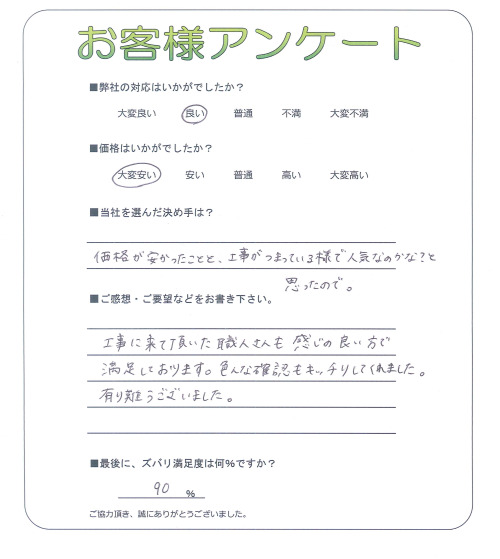 お客様アンケート
■弊社の対応はいかがでしたか？
大変良い 良い 普通 不満 大変不満
■価格はいかがでしたか？
大変安い 安い 普通 高い 大変高い
■当社を選んだ決め手は？
価格が安かったことと、工事がつまっている様で人気なのかな？と
思ったので。
■ご感想・ご要望などをお書き下さい。
工事に来て頂いた職人さんも感じの良い方で
満足しております。色んな確認もキッチリしてくれました。
有り難うございました。
■最後に、ズバリ満足度は何％ですか？
90 ％
ご協力頂き、誠にありがとうございました。